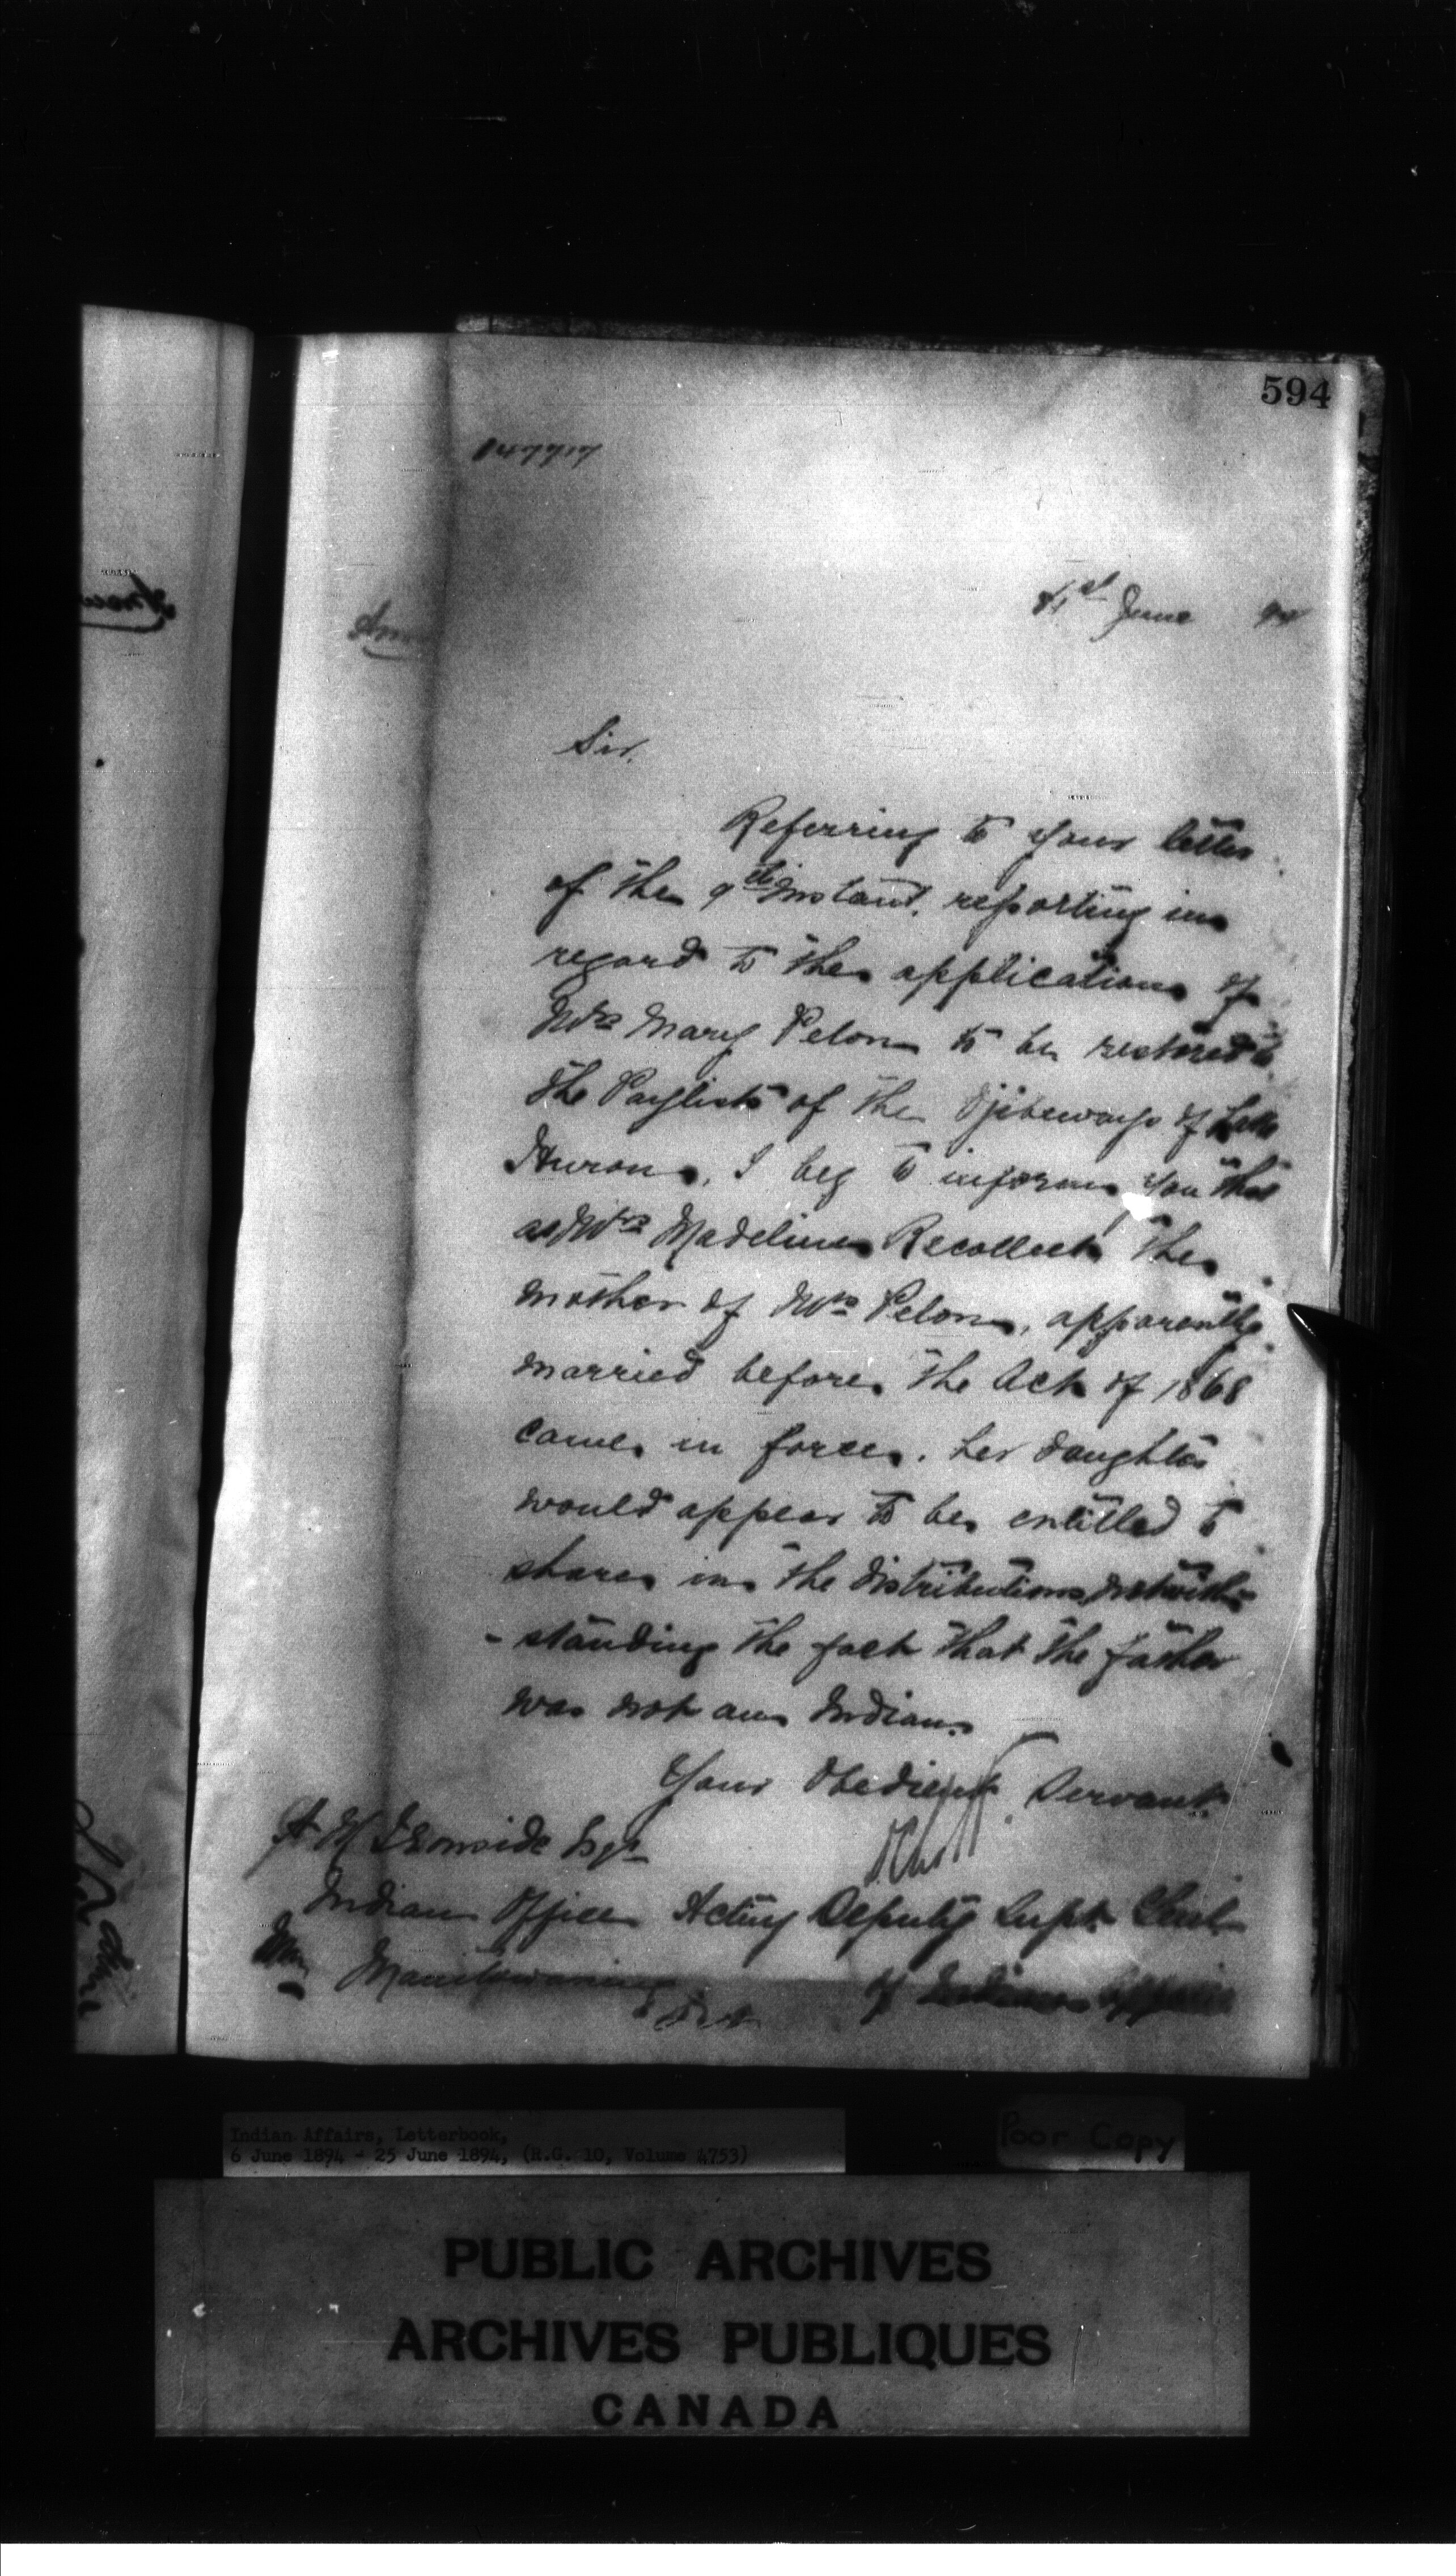 594
147717
21st June 94
Sir,
Referring to your letter
of the 9th instant, reporting in
regard to the application of
Mrs Mary Pelon to be restored to
the Paylists of the Ojibeways of Lake
Huron, I beg to inform you that
as Mrs Madeline Recollect the
mother of Mrs Pelon, apparently
married before the Act of 1868
came in force, her daughter
would appear to be entitled to
share in the distribution, notwith-
-standing the fact that the father
was not an Indian.
Your Obedient Servant
Acting Deputy Supt. Genl
of Indian Affairs
Ironside Esqr
Indian Office
Manitowaning
Ont
Indian Affairs, Letterbook,
6 June 1894 - 25 June 1894, (R.G. 10, Volume 4753)
Poor Copy
PUBLIC ARCHIVES
ARCHIVES PUBLIQUES
CANADA